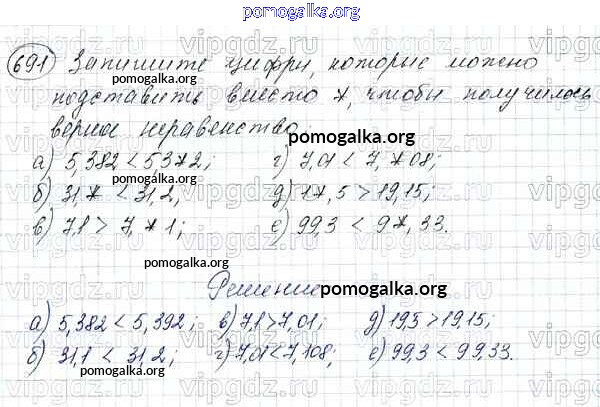 pomogalka.org
691 Запишите цифры, которые можно
pomogalka.org
подставить вместо *, чтобы получилось
верное неравенство.
pomogalka.org
а) 5,382 < 53*2; г) 7,01 < 7,*08;
б) 31,* < 31,2; д) 1*,5 > 19,15;
в) 7,1 > 7,*1; е) 99,3 < 9*,33.
pomogalka.org
Решение
pomogalka.org
а) 5,382 < 5,392; в) 7,1 > 7,01; д) 19,5 > 19,15;
б) 31,1 < 31,2; г) 7,01 < 7,108; е) 99,3 < 99,33.
pomogalka.org